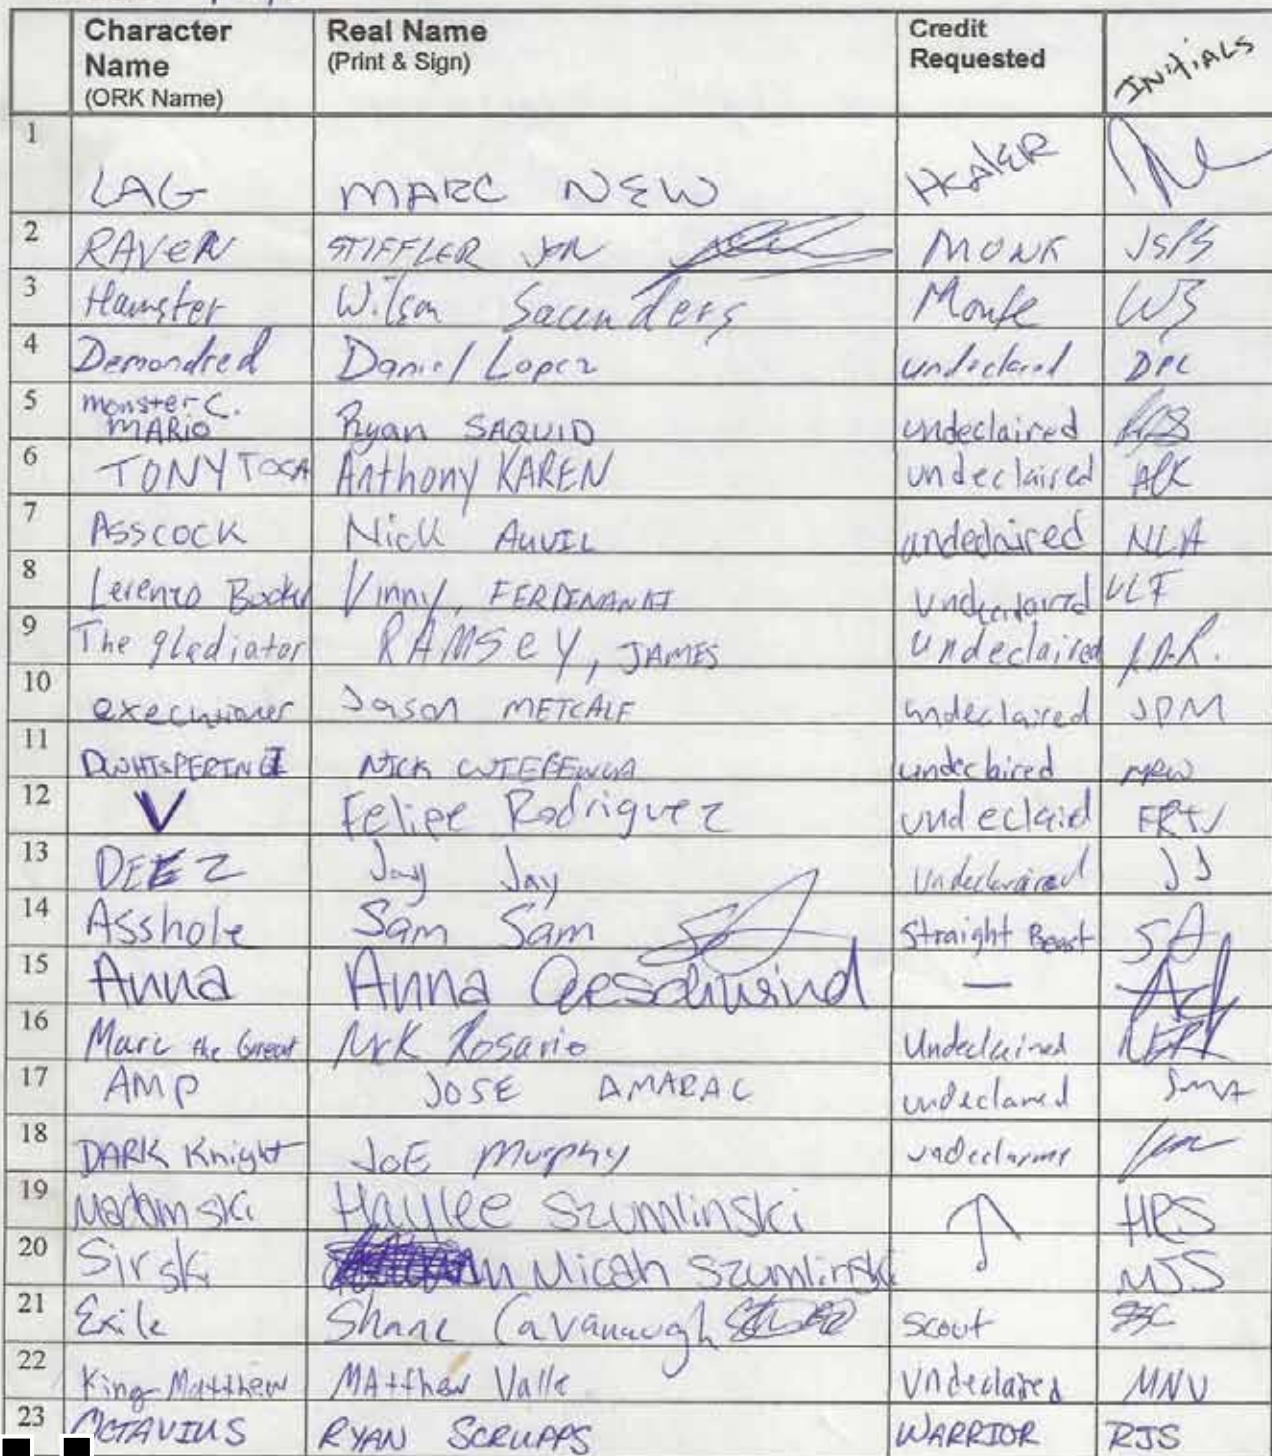 Character Name (ORK Name) Real Name (Print & Sign) Credit Requested INITIALS
1 LAG MARC NEW HEALER
2 RAVEN STIFFLER JON MONK JSPS
3 Hamster Wilson Saunders Monk WS
4 Demondred Daniel Lopez undeclared DPL
5 monster C. MARIO Ryan SAQUID undeclaired
6 TONY TOGA Anthony KAREN undeclaired AK
7 Asscock Nick AUVIL undeclaired NLA
8 Lerenzo Booker Vinny, undeclaired VLF
9 The gladiator RAMSEY, JAMES Undeclaired J.A.R.
10 executioner Jason METCALF undeclaired JPM
11 NICK undeclaired
12 V Felipe Rodriguez undeclaid
13 DEEZ Jay Jay JJ
14 Asshole Sam Sam Straight Beast SA
15 Anna Anna Geschwind —
16 Marc the Great Rosario Undeclained
17 AMP JOSE undeclared JMA
18 DARK Knight JOE Murphy
19 Madamski Haylee Szumlinski ↑ HPS
20 Sirski Micah Szumlinski MJS
21 Exile Shane Cavanaugh Scout
22 King Matthew Matthew Valle Undeclared MNV
23 OCTAVIUS RYAN SCRUPPS WARRIOR RJS